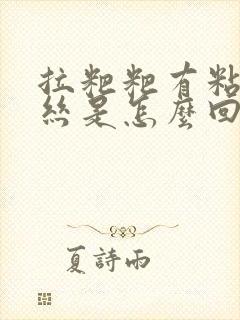 拉粑粑有粘
絲是怎麼回
夏詩雨